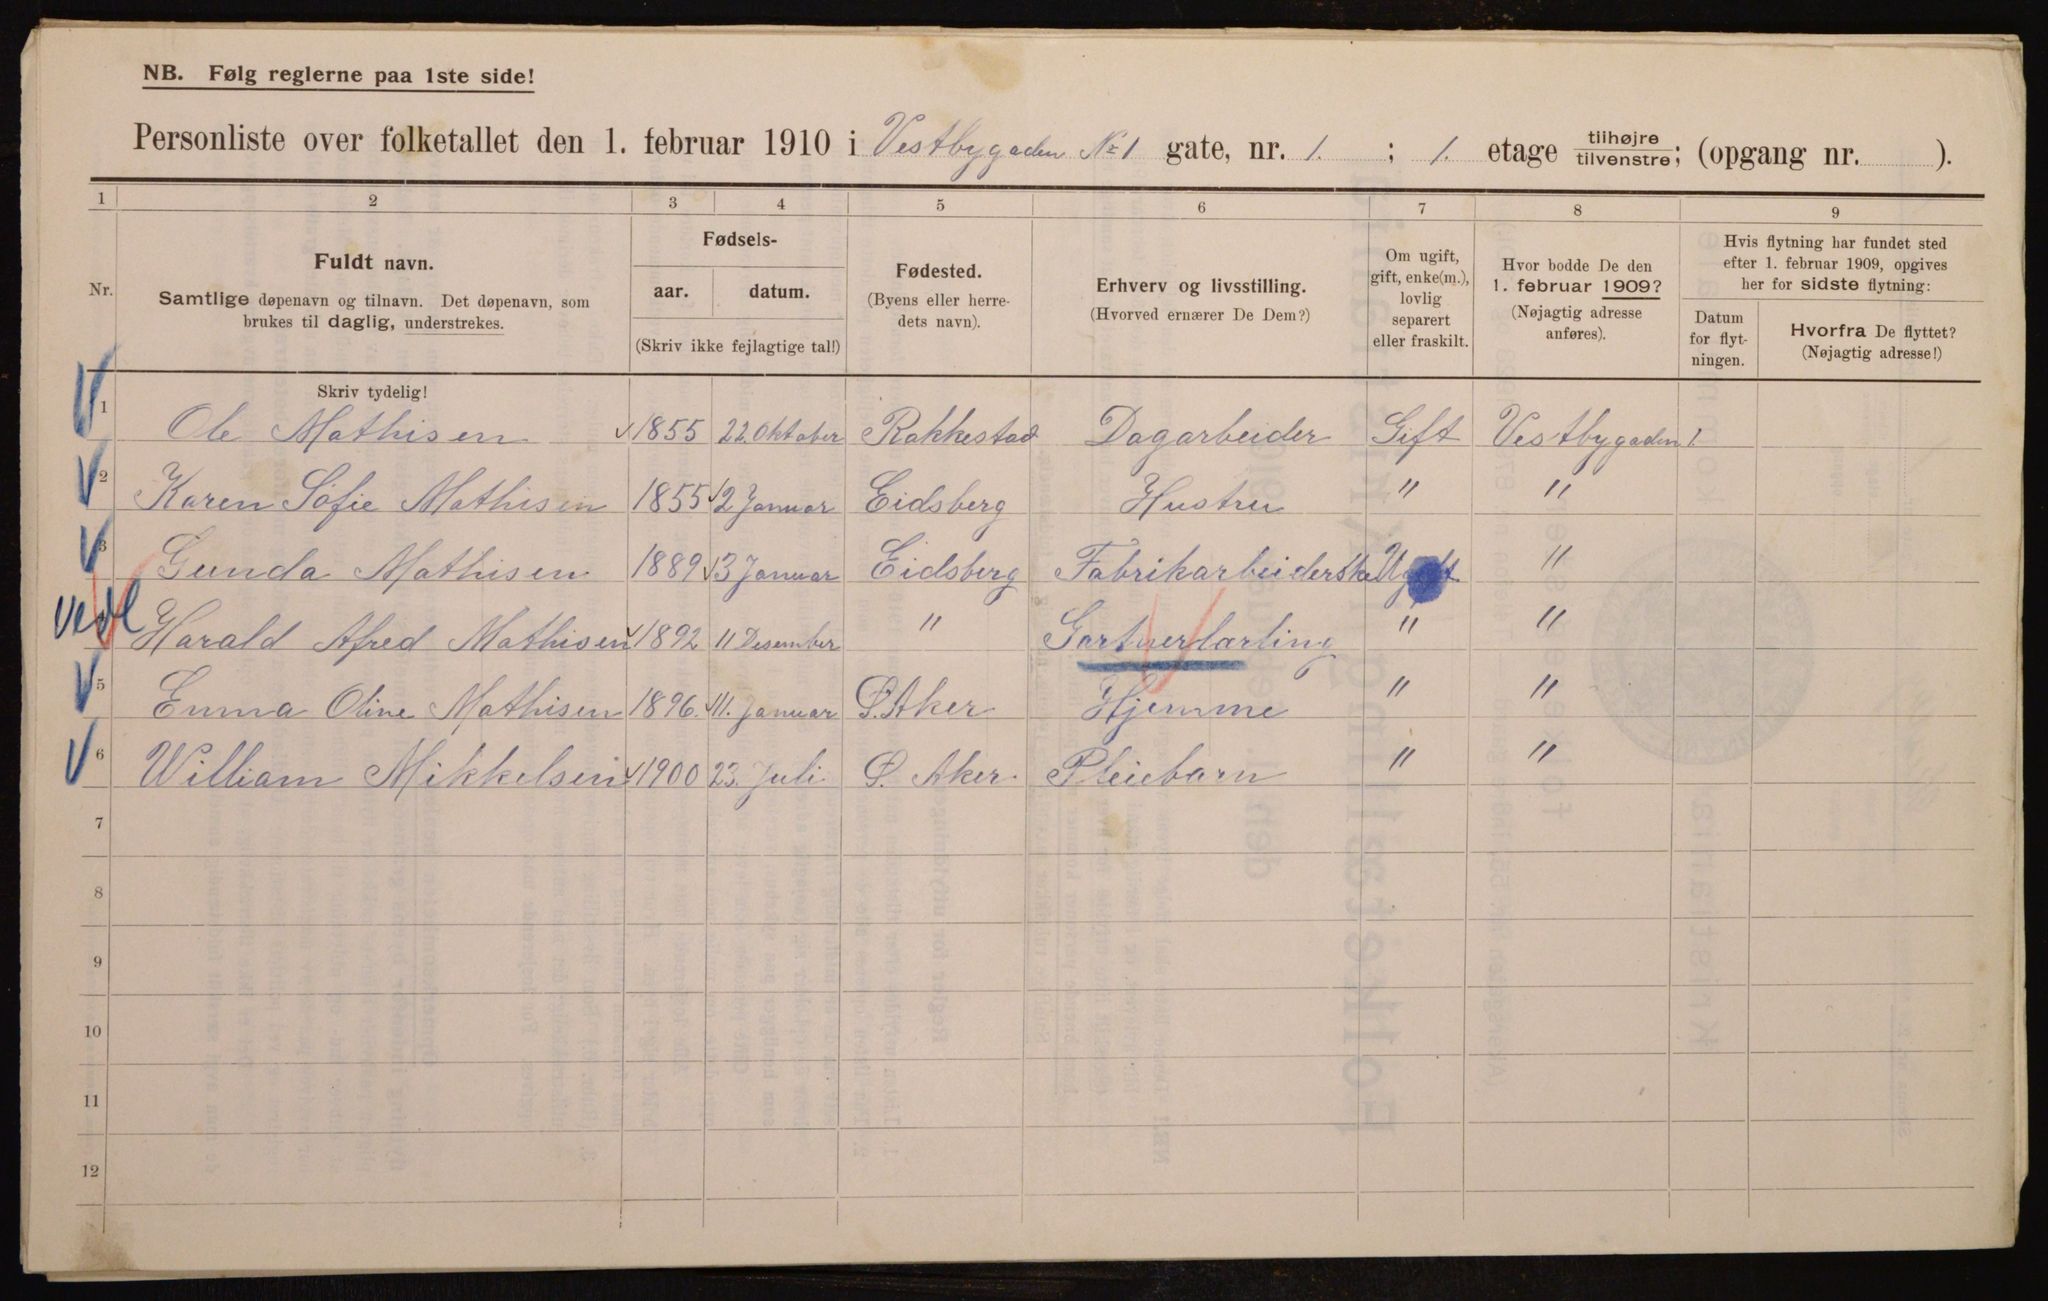 NB. Følg reglerne paa 1ste side!
Personliste over folketallet den 1. februar 1910 i Vestbygaden No 1 gate, nr. 1. ; 1. etage tilhøjre tilvenstre; (opgang nr. ).
1 2 3 4 5 6 7 8 9
Nr.
Fuldt navn.
Samtlige døpenavn og tilnavn. Det døpenavn, som
brukes til daglig, understrekes.
Skriv tydelig!
Fødsels-
aar. datum.
(Skriv ikke fejlagtige tal!)
Fødested.
(Byens eller herre-
dets navn).
Erhverv og livsstilling.
(Hvorved ernærer De Dem?)
Om ugift,
gift, enke(m.),
lovlig
separert
eller fraskilt.
Hvor bodde De den
1. februar 1909?
(Nøjagtig adresse
anføres).
Hvis flytning har fundet sted
efter 1. februar 1909, opgives
her for sidste flytning:
Datum
for flyt-
ningen.
Hvorfra De flyttet?
(Nøjagtig adresse!)
1 Ole Mathisen 1855 22. Oktober Rakkestad Dagarbeider Gift Vestbygaden 1.
2 Karen Sofie Mathisen 1855 2 Januar Eidsberg Hustru " "
3 Gunda Mathisen 1889 3 Januar Eidsberg Fabrikarbeiderske Ugift "
Harald Afred Mathisen 1892 11 Desember " Gartnerlærling " "
5 Emma Oline Mathisen 1896. 11. Januar Ø. Aker Hjemme " "
6 William Mikkelsen 1900 23. Juli Ø. Aker Pleiebarn " "
7
8
9
10
11
12